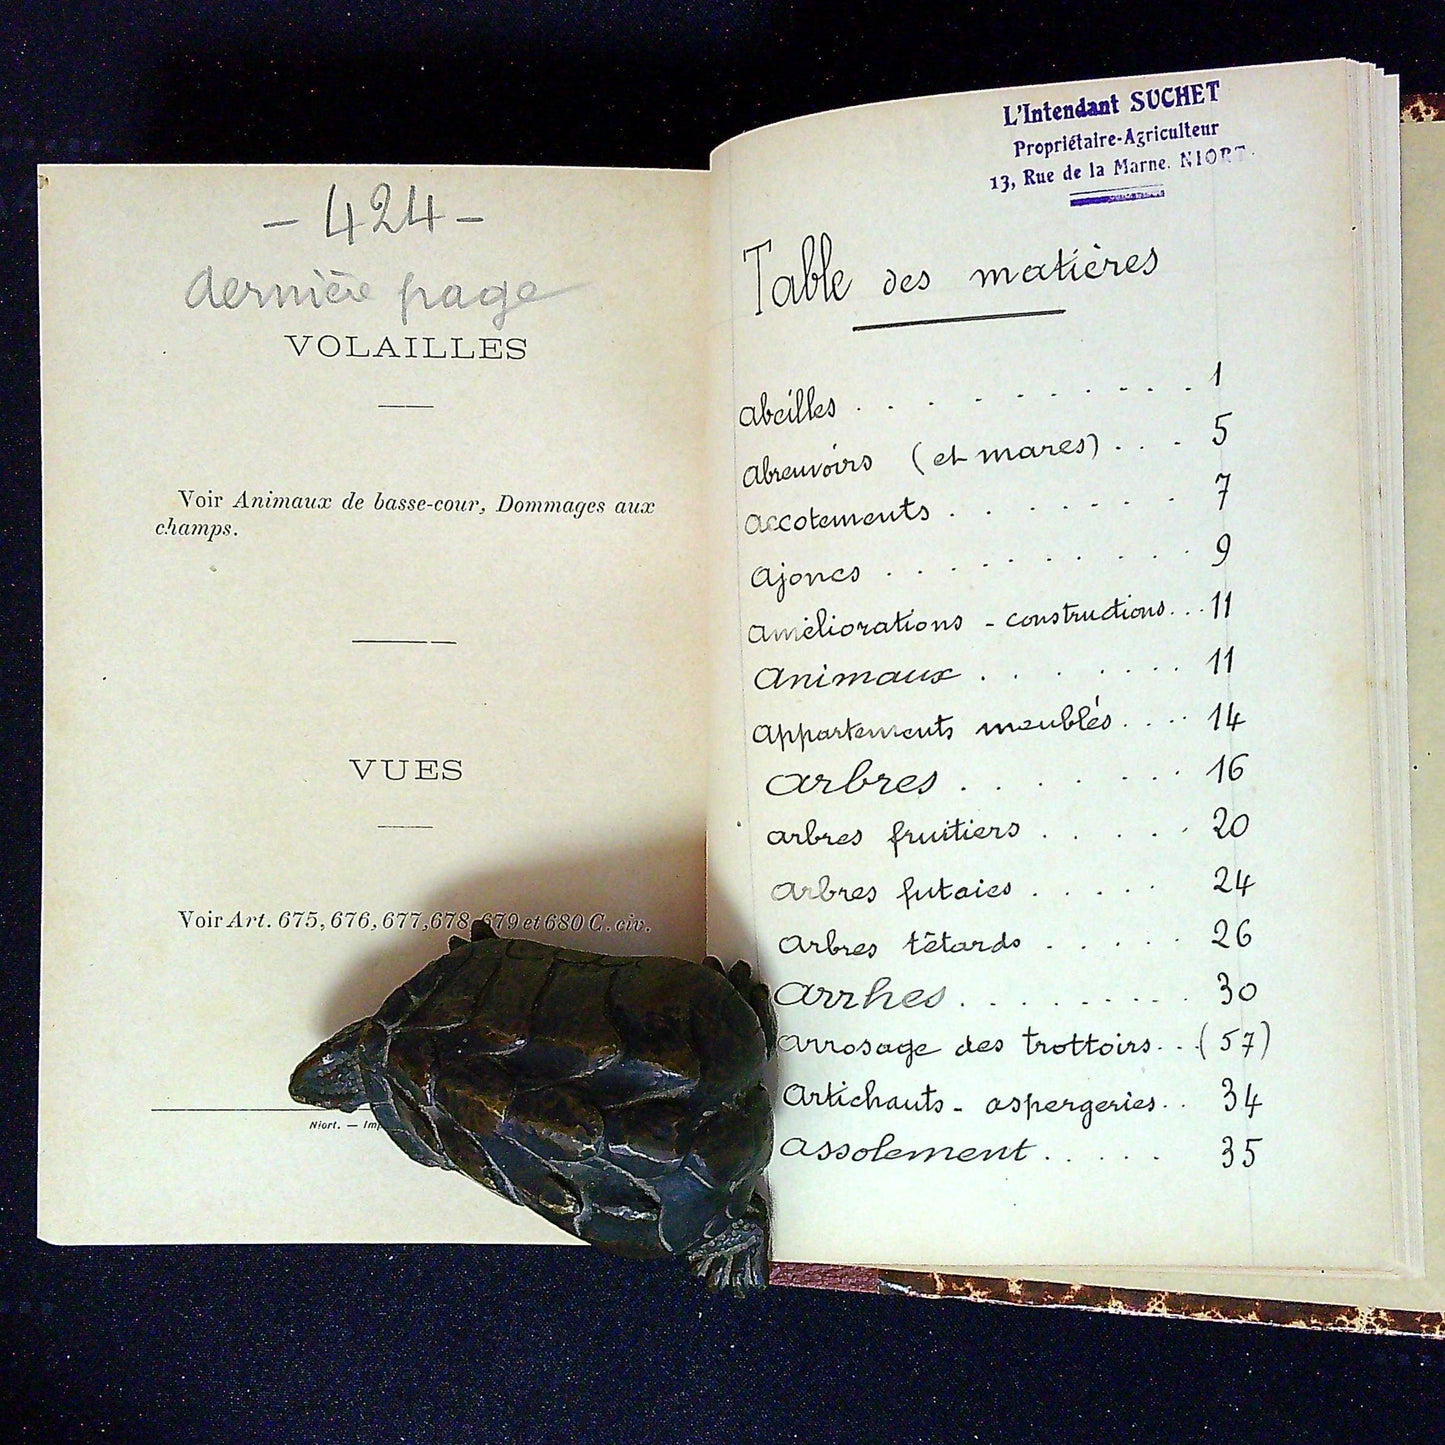 - 424 -
dernière page
VOLAILLES
Voir Animaux de basse-cour, Dommages aux
champs.
VUES
Voir Art. 675, 676, 677, 678, 679 et 680 C. civ.
Niort. — Imp
L'Intendant SUCHET
Propriétaire-Agriculteur
13, Rue de la Marne. NIORT.
Table des matières
abeilles . . . . . . . . . . 1
abreuvoirs (et mares) . . . 5
accotements . . . . . . . 7
ajoncs . . . . . . . . . . 9
améliorations - constructions... 11
animaux . . . . . . . 11
appartements meublés . . . . 14
arbres . . . . . . . 16
arbres fruitiers . . . . . 20
arbres futaies . . . . . 24
arbres têtards . . . . . 26
arrhes . . . . . . . . . 30
arrosage des trottoirs . . (57)
artichauts - aspergeries . . 34
assolement . . . . . 35